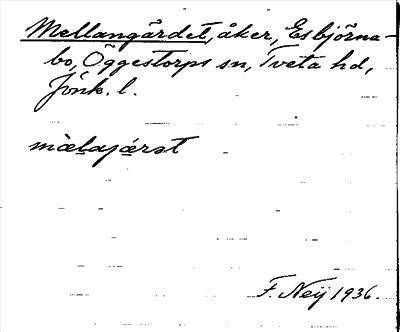 Mellangärdet, åker, Esbjörna-
bo, Öggestorps sn, Tveta hd,
Jönk. l.
mèlajárst
F. Neij 1936.